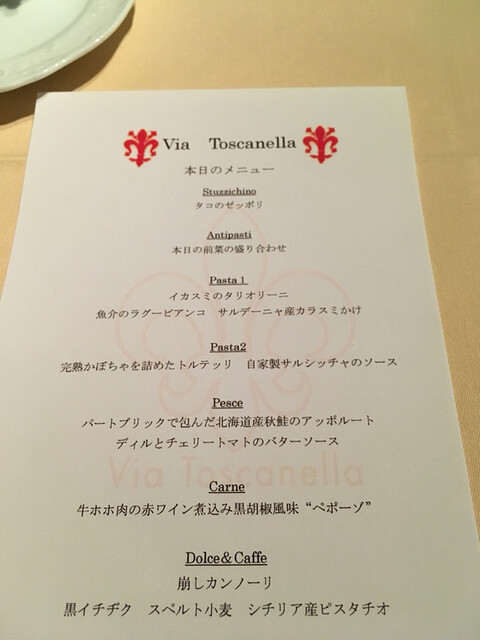 Via Toscanella
本日のメニュー
Stuzzichino
タコのゼッポリ
Antipasti
本日の前菜の盛り合わせ
Pasta 1
イカスミのタリオリーニ
魚介のラグービアンコ　サルデーニャ産カラスミかけ
Pasta2
完熟かぼちゃを詰めたトルテッリ　自家製サルシッチャのソース
Pesce
パートブリックで包んだ北海道産秋鮭のアッポルート
ディルとチェリートマトのバターソース
Via Toscanella
Carne
牛ホホ肉の赤ワイン煮込み黒胡椒風味“ペポーゾ”
Dolce＆Caffe
崩しカンノーリ
黒イチヂク　スペルト小麦　シチリア産ピスタチオ